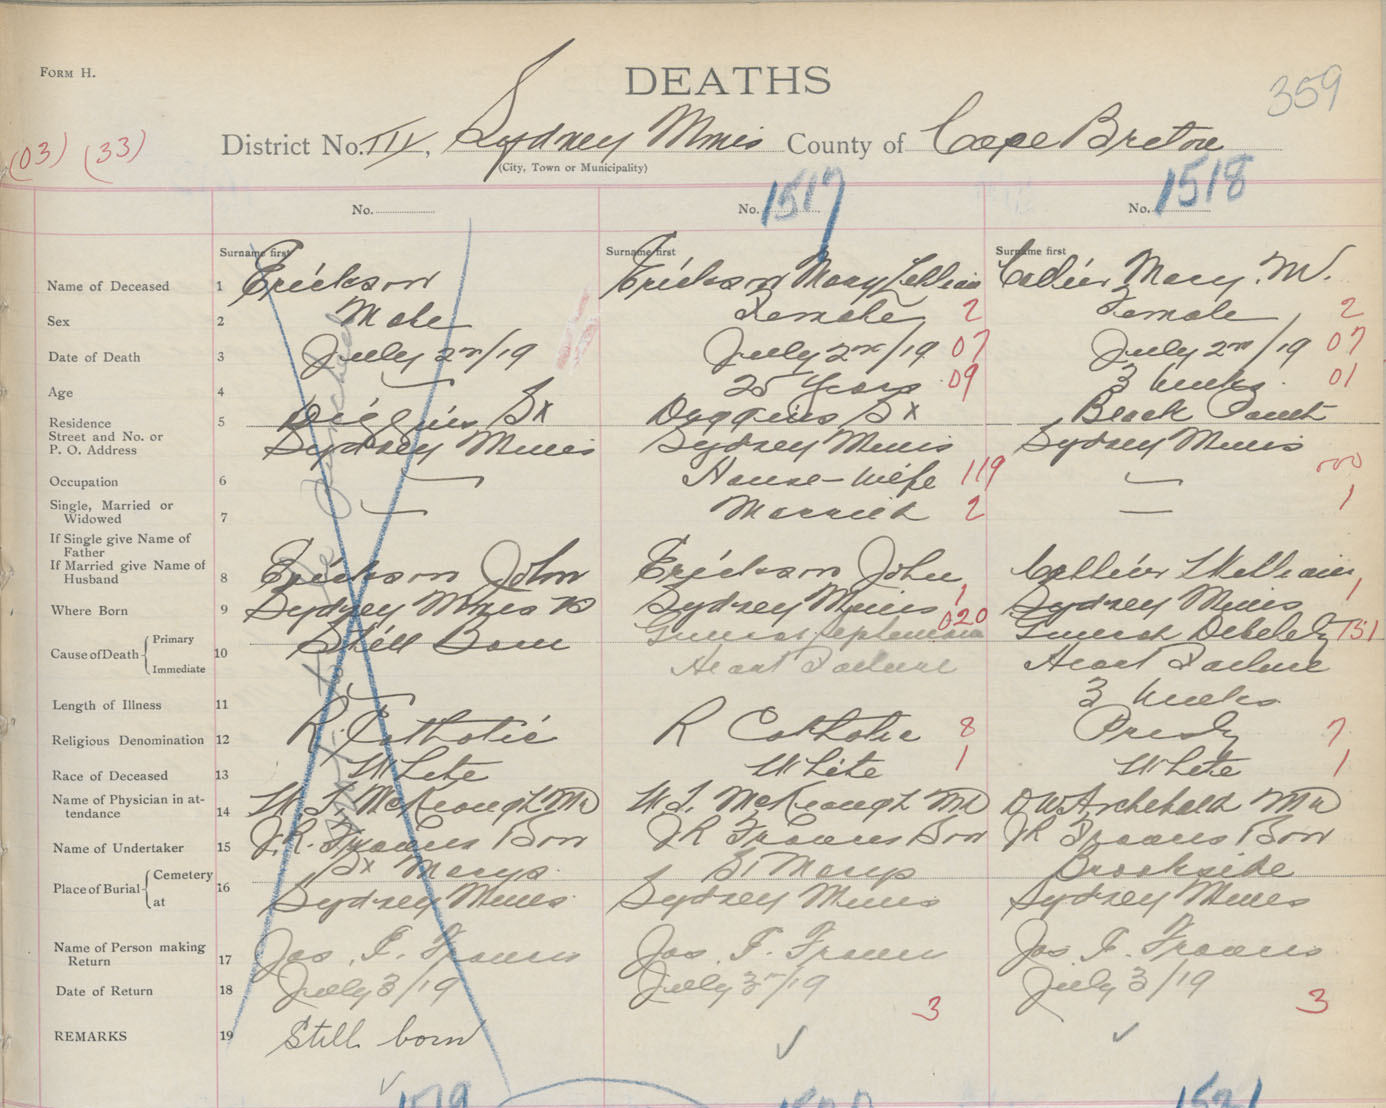 FORM H.
DEATHS
359
(03) (33)
District No. III, Sydney Mines County of Cape Breton
(City, Town or Municipality)
No. No. 1517 No. 1518
Surname first Surname first Surname first
Name of Deceased 1 Erickson Erickson Mary Lillian Collier Mary. M.
Sex 2 Male Female 2 Female 2
Date of Death 3 July 2nd/19 July 2nd/19 07 July 2nd/19 07
Age 4 25 Years 09 3 Weeks 01
Residence 5 Diggins St Duggins St Beach Point
Street and No. or
P. O. Address Sydney Mines Sydney Mines Sydney Mines
Occupation 6 — House-Wife 119 — 000
Single, Married or
Widowed 7 — Married 2 — 1
If Single give Name of
Father
If Married give Name of
Husband 8 Erickson John Erickson John Collier William
Where Born 9 Sydney Mines Sydney Mines 1 Sydney Mines 1
Cause of Death Primary 10 Still Born General Septemia 020 General Debelety 151
Immediate Heart Failure Heart Failure
Length of Illness 11 3 Weeks
Religious Denomination 12 R. Catholic R Catholic 8 Presby 7
Race of Deceased 13 White White 1 White 1
Name of Physician in at-
tendance 14 W. J. McKeough MD W. J. McKeough MD D W Archibald MD
Name of Undertaker 15 J. R. Francis Bon J R Francis Bon J R Francis Bon
Place of Burial Cemetery 16 St Marys St Marys Brookside
at Sydney Mines Sydney Mines Sydney Mines
Name of Person making
Return 17 Jos. F. Francis Jos. F. Francis Jos. F. Francis
Date of Return 18 July 3/19 July 3rd/19 July 3/19
3 3
REMARKS 19 Still born
1519 1521